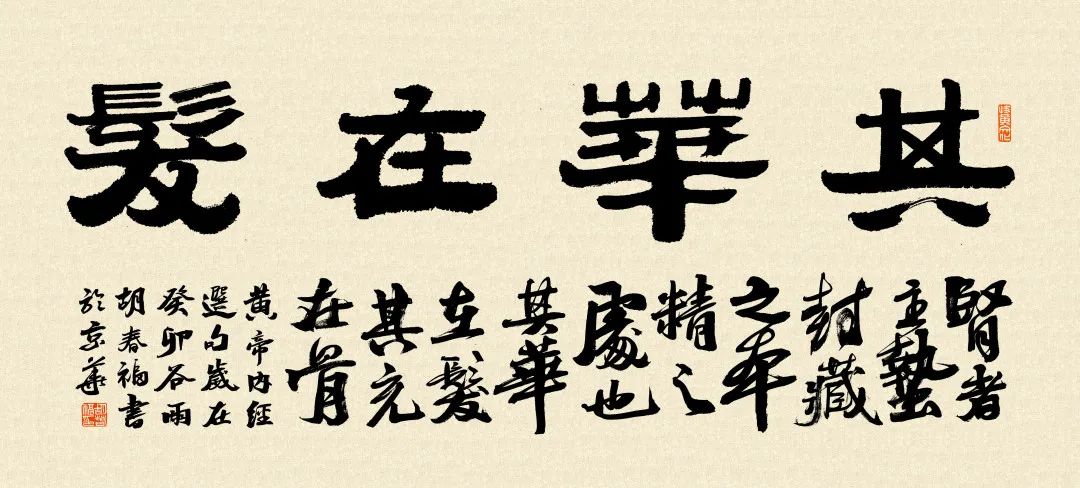 其華在髮
腎者
主蟄
封藏
之本
精之
處也
其華
在髮
其充
在骨
黄帝内經
選句歲在
癸卯谷雨
胡春福書
於京華